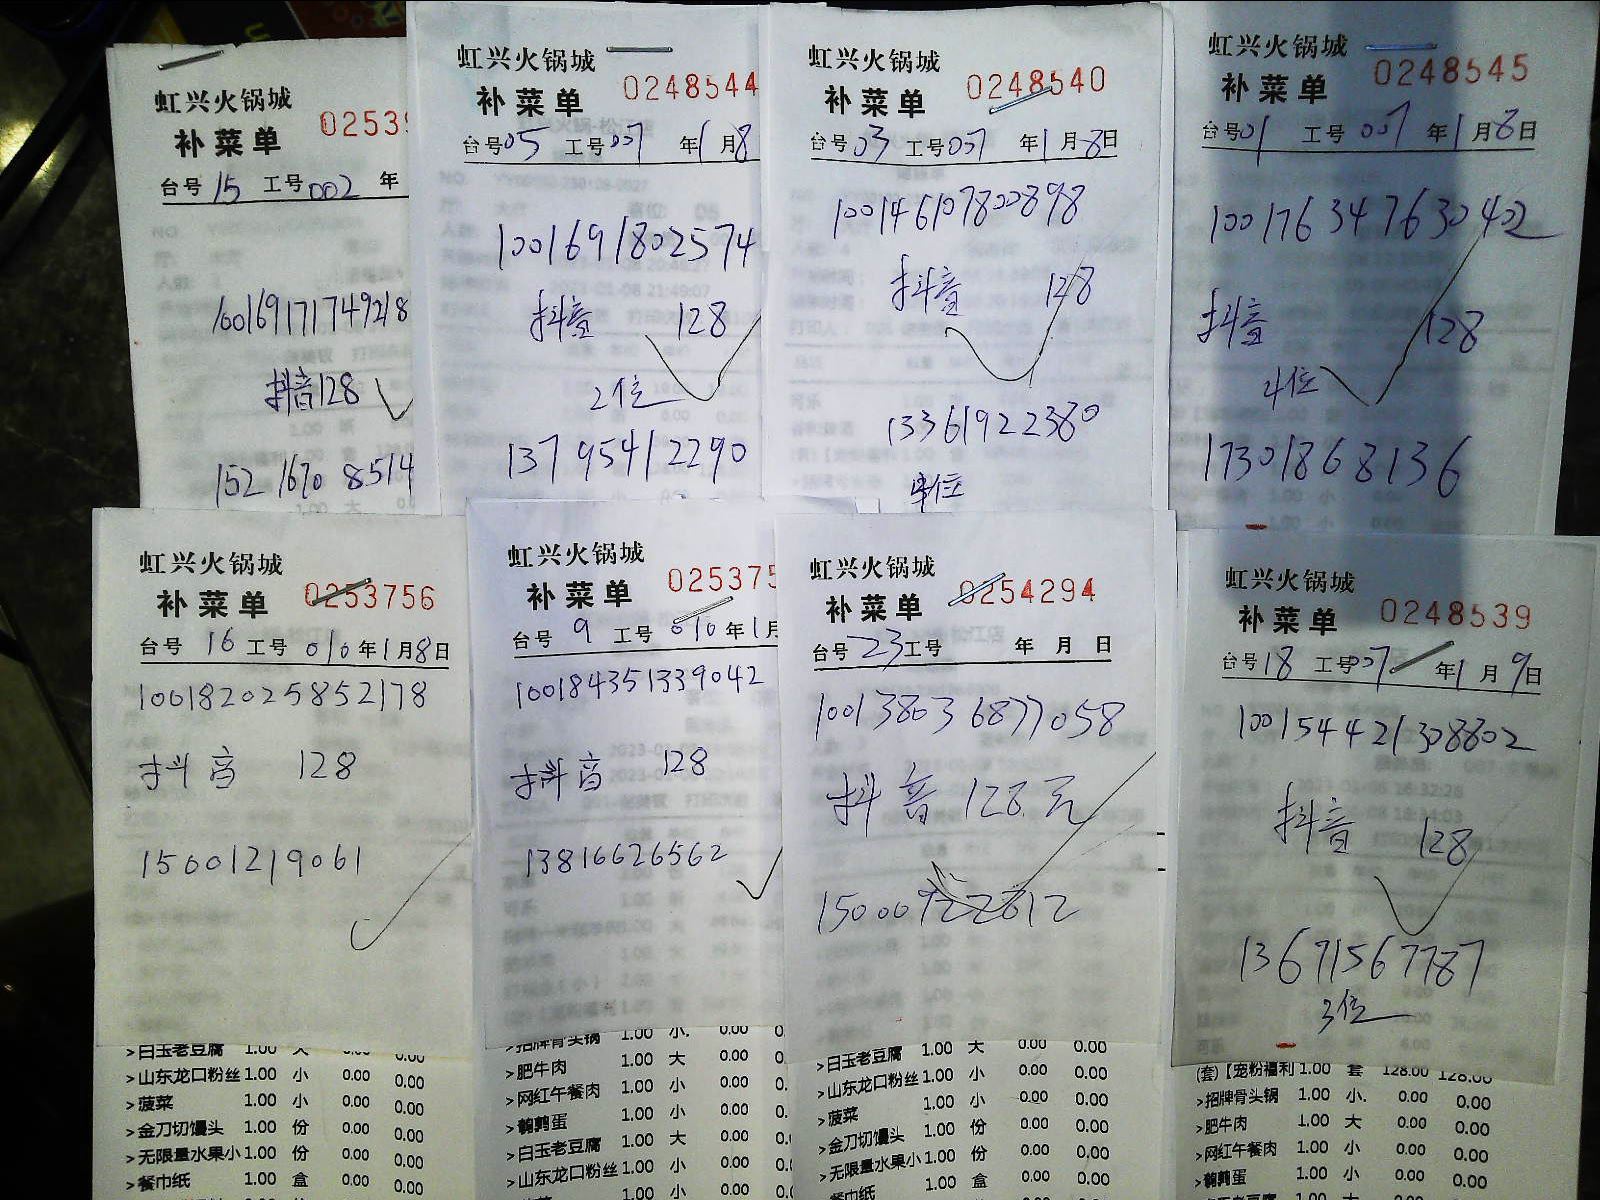 虹兴火锅城
补菜单 02539
台号15 工号002 年
100169171749218
抖音128
152 1670 8514
虹兴火锅城
补菜单 0248544
台号05 工号007 年1月8
1001691802574
抖音 128
2位
13795412290
虹兴火锅城
补菜单 0248540
台号03 工号007 年1月8日
100146107800898
抖音 128
13361922380
虹兴火锅城
补菜单 0248545
台号01 工号007 年1月8日
1001763476 30402
抖音 128
4位
17301868136
虹兴火锅城
补菜单 0253756
台号 16 工号 010年1月8日
100182025852178
抖音 128
15001219061
虹兴火锅城
补菜单 025375
台号 9 工号 010年1月
100184351339042
抖音 128
13816626562
虹兴火锅城
补菜单 0254294
台号23工号 年 月 日
100138036877058
抖音 128元
虹兴火锅城
补菜单 0248539
台号18 工号007 年1月9日
1001544213 08802
抖音 128
13671567787
3位
>白玉老豆腐 1.00 大 0.00 0.00
>山东龙口粉丝 1.00 小 0.00 0.00
>菠菜 1.00 小 0.00 0.00
>金刀切馒头 1.00 份 0.00 0.00
>无限量水果小 1.00 份 0.00 0.00
>餐巾纸 1.00 盒 0.00 0.00
>招牌骨头锅 1.00 小. 0.00 0.
>肥牛肉 1.00 大 0.00 0.
>网红午餐肉 1.00 小 0.00 0.
>鹌鹑蛋 1.00 小 0.00 0.
>白玉老豆腐 1.00 大 0.00 0.
>山东龙口粉丝 1.00 小 0.00 0.
>白玉老豆腐 1.00 大 0.00 0.00
>山东龙口粉丝 1.00 小 0.00 0.00
>菠菜 1.00 小 0.00 0.00
>金刀切馒头 1.00 份 0.00 0.00
>无限量水果小 1.00 份 0.00 0.00
>餐巾纸 1.00 盒 0.00 0.00
(套)【宠粉福利 1.00 套 128.00 128.00
>招牌骨头锅 1.00 小. 0.00 0.00
>肥牛肉 1.00 大 0.00 0.00
>网红午餐肉 1.00 小 0.00 0.00
>鹌鹑蛋 1.00 小 0.00 0.00